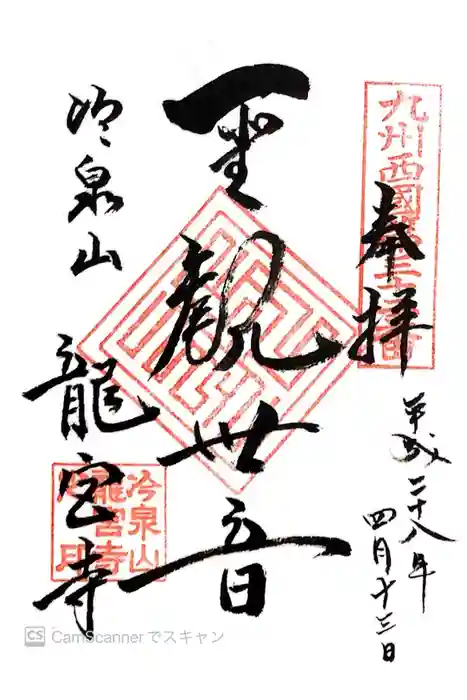 九州西國第三十三番
奉拝
平成二十八年
四月十三日
聖観世音
冷泉山
龍宮寺
冷泉山
龍宮寺
CS CamScannerでスキャン